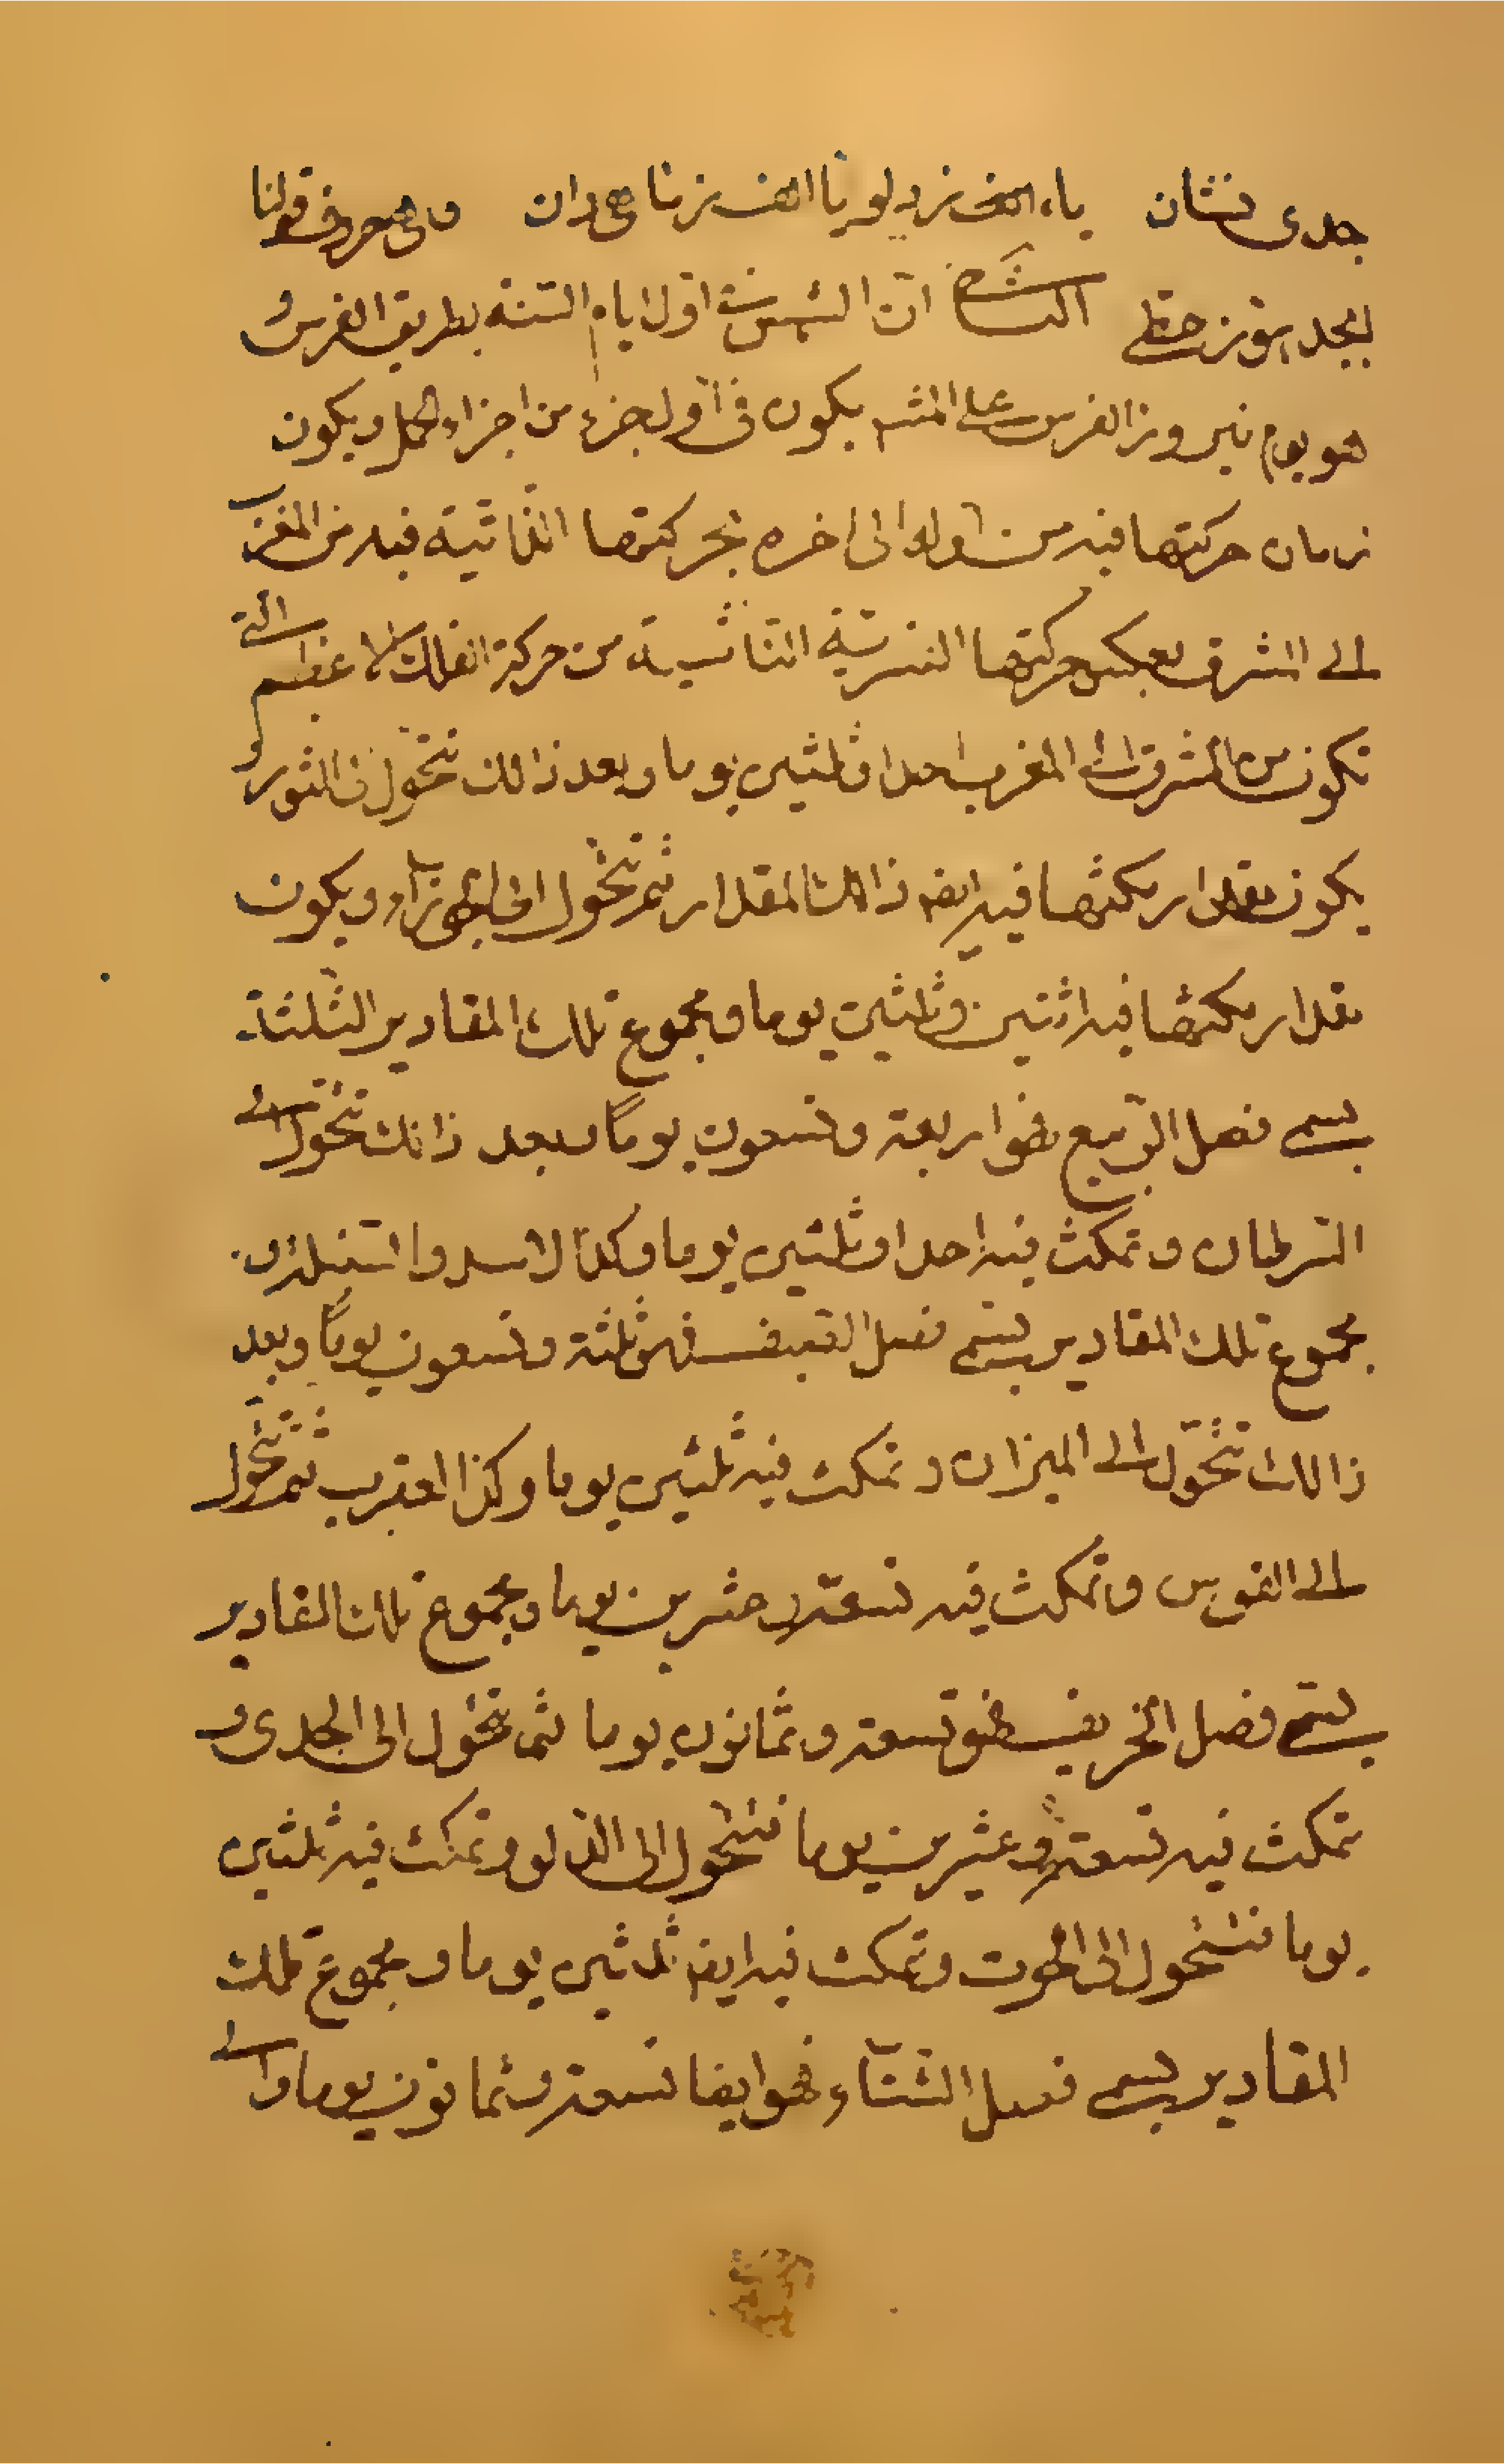 جدى نشان ياء الف نزد لو يا الف نزنا هى دان وهى حروف قولنا
ابجد هوز حطى الشارح ان الشمس فى اول ايام السنة بطريق الفرس و
هو يوم نيروز الفرس على المشهـ يكون فى اول جزء من اجزاء الحمل ويكون
زمان حركتها فيه من اوله الى اخره بحركتها الثانية فيه من المغرب
الى المشرق بعكس حركتها السريعة الناشية من حركة الفلك الاعظم التى
تكون من المشرق الى المغرب احدا وثلثين يوما وبعد ذالك تتحول فى الثور و
يكون مقدار مكثها فيه ايضـ ذالك المقدار ثم تتحول الى الجوزاء ويكون
مقدار مكثها فيه اثنين وثلثين يوما ومجموع تلك المقادير الثلثة
يسمى فصل الربيع فهو اربعة وتسعون يوما وبعد ذالك تتحول الى
السرطان وتمكث فيه احدا وثلثين يوما وكذا الاسد والسنبلة و
مجموع تلك المقادير يسمى فصل الصيف فهى ثلثة وتسعون يوما وبعد
ذالك تتحول الى الميزان وتمكث فيه ثلثين يوما وكذا العقرب ثم تتحول
الى القوس وتمكث فيه تسعة وعشرين يوما ومجموع تلك المقادير
يسمى فصل الخريف فهو تسعة وثمانون يوما ثم تتحول الى الجدى و
تمكث فيه تسعة وعشرين يوما فتتحول الى الدلو وتمكث فيه ثلثين
يوما فتتحول الى الحوت وتمكث فيه ايضـ ثلثين يوما ومجموع تلك
المقادير يسمى فصل الشتآء فهو ايضا تسعة وثمانون يوما والى